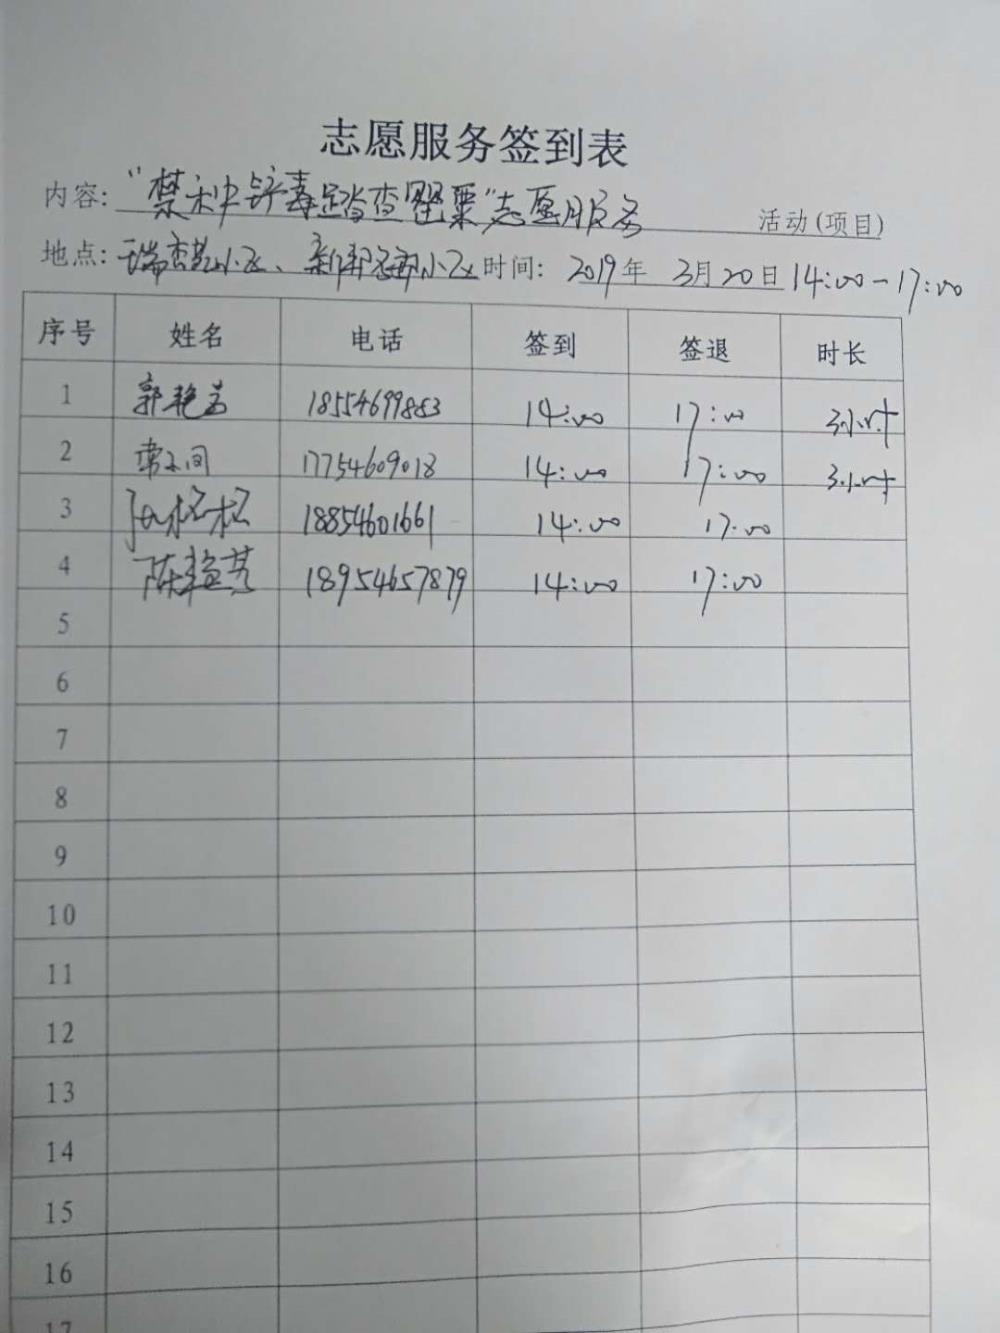 志愿服务签到表
内容: "禁种铲毒踏查罂粟"志愿服务 活动(项目)
地点: 小区、小区 时间: 2019年 3月20日 14:00-17:00
序号 姓名 电话 签到 签退 时长
1 郭艳 18554699883 14:00 17:00 3小时
2 17754609018 14:00 17:00 3小时
3 18854601661 14:00 17:00
4 陈 18954657879 14:00 17:00
5
6
7
8
9
10
11
12
13
14
15
16
17